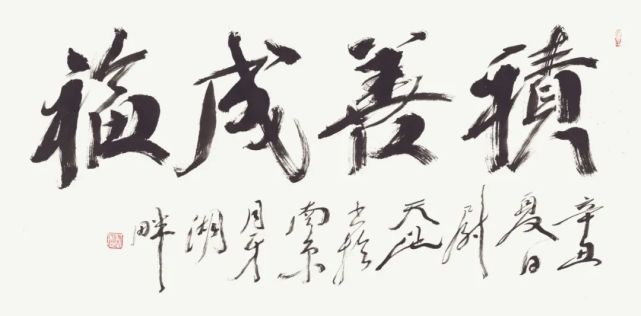 積善成福
辛丑夏日尉天池书於南京月牙湖畔